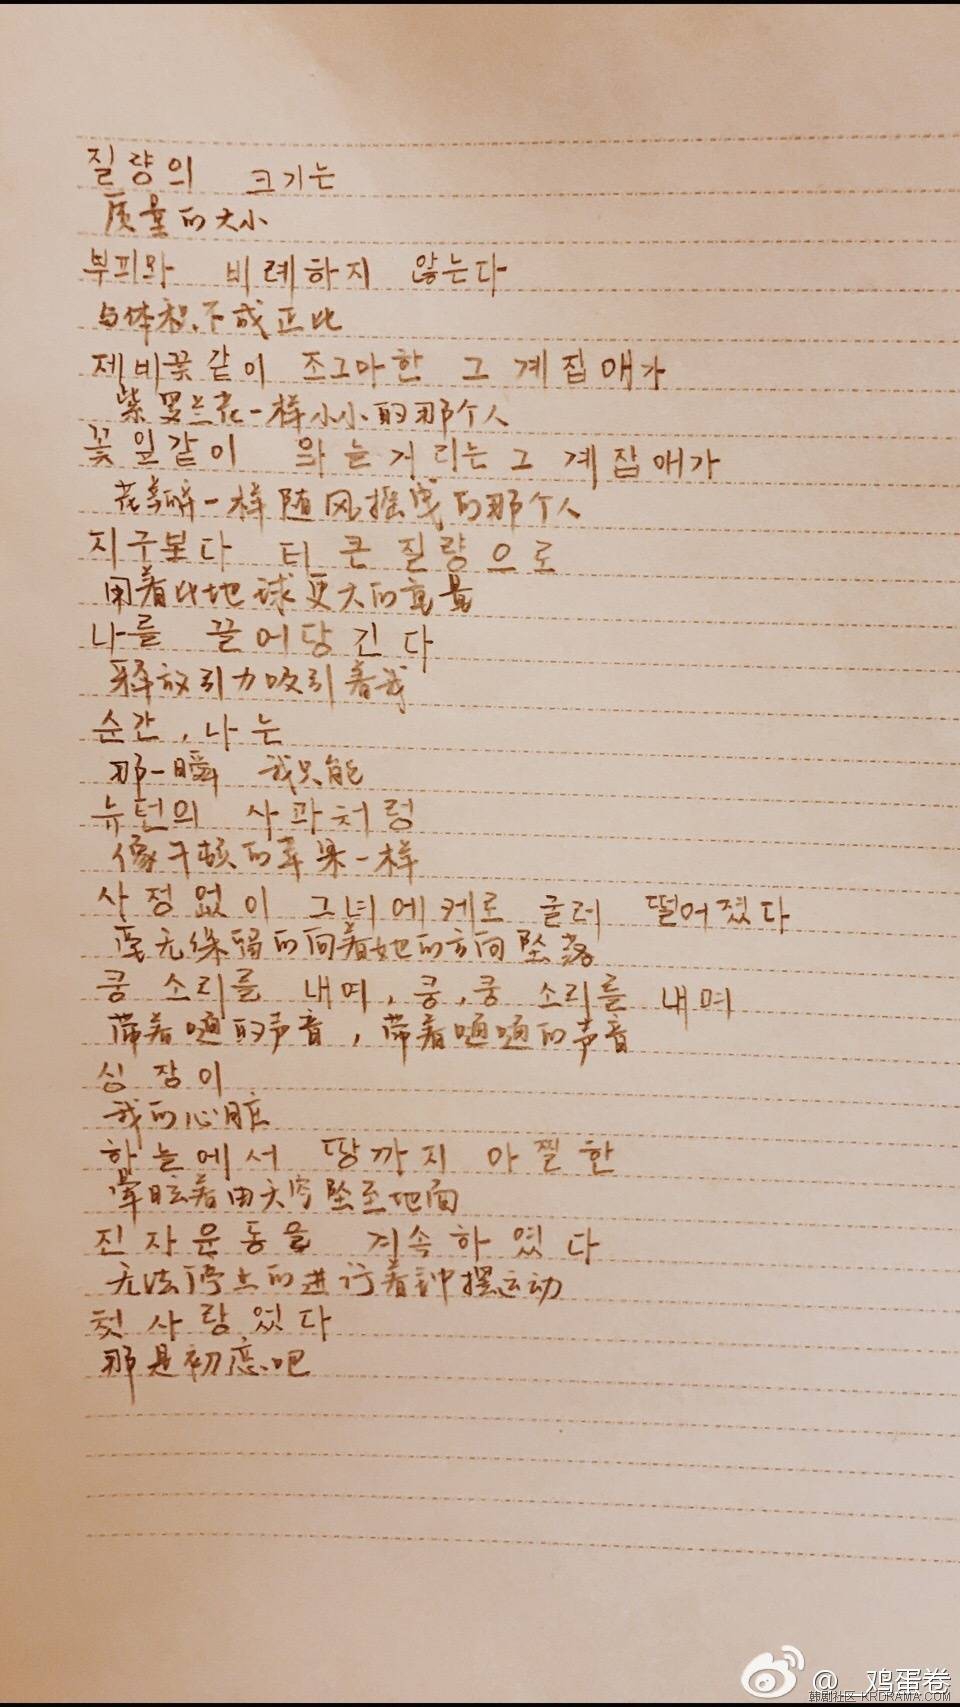 질량의 크기는
质量的大小
부피와 비례하지 않는다
与体积不成正比
제비꽃같이 조그마한 그 계집애가
紫罗兰花一样小小的那个人
꽃잎같이 하늘거리는 그 계집애가
花瓣一样随风摇曳的那个人
지구보다 더 큰 질량으로
用着比地球更大的质量
나를 끌어당긴다
释放引力吸引着我
순간, 나는
那一瞬 我只能
뉴턴의 사과처럼
像牛顿的苹果一样
사정없이 그녀에게로 굴러 떨어졌다
毫无缘故的向着她的方向坠落
쿵 소리를 내며, 쿵, 쿵 소리를 내며
带着嗵的声音，带着嗵嗵的声音
심장이
我的心脏
하늘에서 땅까지 아찔한
晕眩着由天空坠至地面
진자운동을 계속하였다
无法停止的进行着钟摆运动
첫사랑였다
那是初恋吧
@_鸡蛋卷
韩剧社区-KRDRAMA.COM